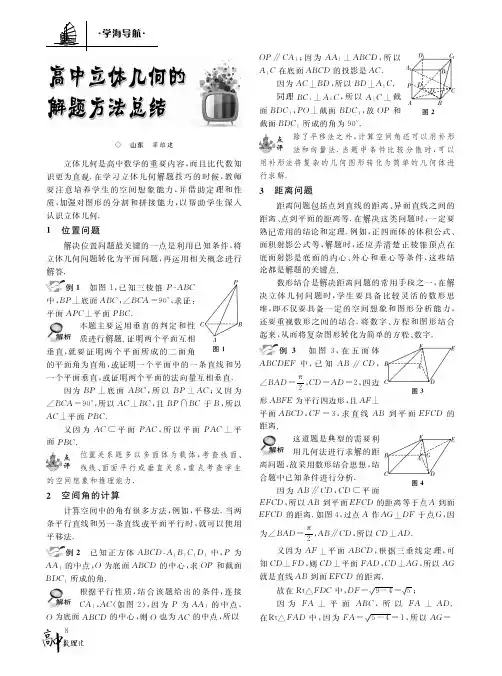 ·学海导航·
高中立体几何的
解题方法总结
◇ 山东
立体几何是高中数学的重要内容,而且比代数知
识更为直观.在学习立体几何解题技巧的时候,教师
要注意培养学生的空间想象能力,并借助定理和性
质,加强对图形的分割和拼接能力,以帮助学生深入
认识立体几何.
1 位置问题
解决位置问题最关键的一点是利用已知条件,将
立体几何问题转化为平面问题,再运用相关概念进行
解答.
例1 如图1,已知三棱锥P-ABC
中,BP⊥底面ABC,∠BCA=90°,求证:
平面APC⊥平面PBC.
解析 本题主要运用垂直的判定和性
质进行解题.证明两个平面互相
垂直,就要证明两个平面所成的二面角
的平面角为直角,或证明一个平面中的一条直线和另
一个平面垂直,或证明两个平面的法向量互相垂直.
P
C B
A
图1
因为BP⊥底面ABC,所以BP⊥AC,又因为
∠BCA=90°,所以AC⊥BC,且BP∩BC于B,所以
AC⊥平面PBC.
又因为AC⊂平面PAC,所以平面PAC⊥平
面PBC.
点评 位置关系题多以多面体为载体,考查线面、
线线、面面平行或垂直关系,重点考查学生
的空间想象和推理能力.
2 空间角的计算
计算空间中的角有很多方法,例如,平移法.当两
条平行直线和另一条直线或平面平行时,就可以使用
平移法.
例2 已知正方体ABCD-A₁B₁C₁D₁中,P为
AA₁的中点,O为底面ABCD的中心,求OP和截面
BDC₁所成的角.
解析 根据平行性质,结合该题给出的条件,连接
CA₁,AC(如图2),因为P为AA₁的中点,
O为底面ABCD的中心,则O也为AC的中点,所以
8
高中数理化
OP∥CA₁;因为AA₁⊥ABCD,所以
A₁C在底面ABCD的投影是AC.
因为AC⊥BD,所以BD⊥A₁C,
同理BC₁⊥A₁C,所以A₁C⊥截
面BDC₁,PO⊥截面BDC₁,故OP和
截面BDC₁所成的角为90°.
图2
点评 除了平移法之外,计算空间角还可以用补形
法和向量法.当题中条件比较分散时,可以
用补形法将复杂的几何图形转化为简单的几何体进
行求解.
3 距离问题
距离问题包括点到直线的距离、异面直线之间的
距离、点到平面的距离等.在解决这类问题时,一定要
熟记常用的结论和定理.例如,正四面体的体积公式、
面积射影公式等,解题时,还应弄清楚正棱锥顶点在
底面射影是底面的内心、外心和垂心等条件,这些结
论都是解题的关键点.
数形结合是解决距离问题的常用手段之一,在解
决立体几何问题时,学生要具备比较灵活的数形思
维,即不仅要具备一定的空间想象和图形分析能力,
还要重视数形之间的结合,将数字、方程和图形结合
起来,从而将复杂图形转化为简单的方程、数字.
例3 如图3,在五面体
ABCDEF中,已知AB∥CD,
∠BAD=π/2,CD=AD=2,四边
形ABFE为平行四边形,且AF⊥
平面ABCD,CF=3,求直线AB到平面EFCD的
距离.
图3
解析 这道题是典型的需要利
用几何法进行求解的距
离问题,故采用数形结合思想,结
合题中已知条件进行分析.
图4
因为AB∥CD,CD⊂平面
EFCD,所以AB到平面EFCD的距离等于点A到面
EFCD的距离.如图4,过点A作AG⊥DF于点G,因
为∠BAD=π/2,AB∥CD,所以CD⊥AD.
又因为AF⊥平面ABCD,根据三垂线定理,可
知CD⊥FD,则CD⊥平面FAD,CD⊥AG,所以AG
就是直线AB到面EFCD的距离.
故在Rt△FDC中,DF=√9-4=√5;
因为FA⊥平面ABC,所以FA⊥AD.
在Rt△FAD中,因为FA=√5-4=1,所以AG=